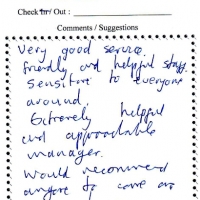 Check In / Out :
Comments / Suggestions
Very good service.
friendly and helpful staff.
Sensitive to everyone
around.
Extremely helpful
and approachable
manager.
Would recommend
anyone to come